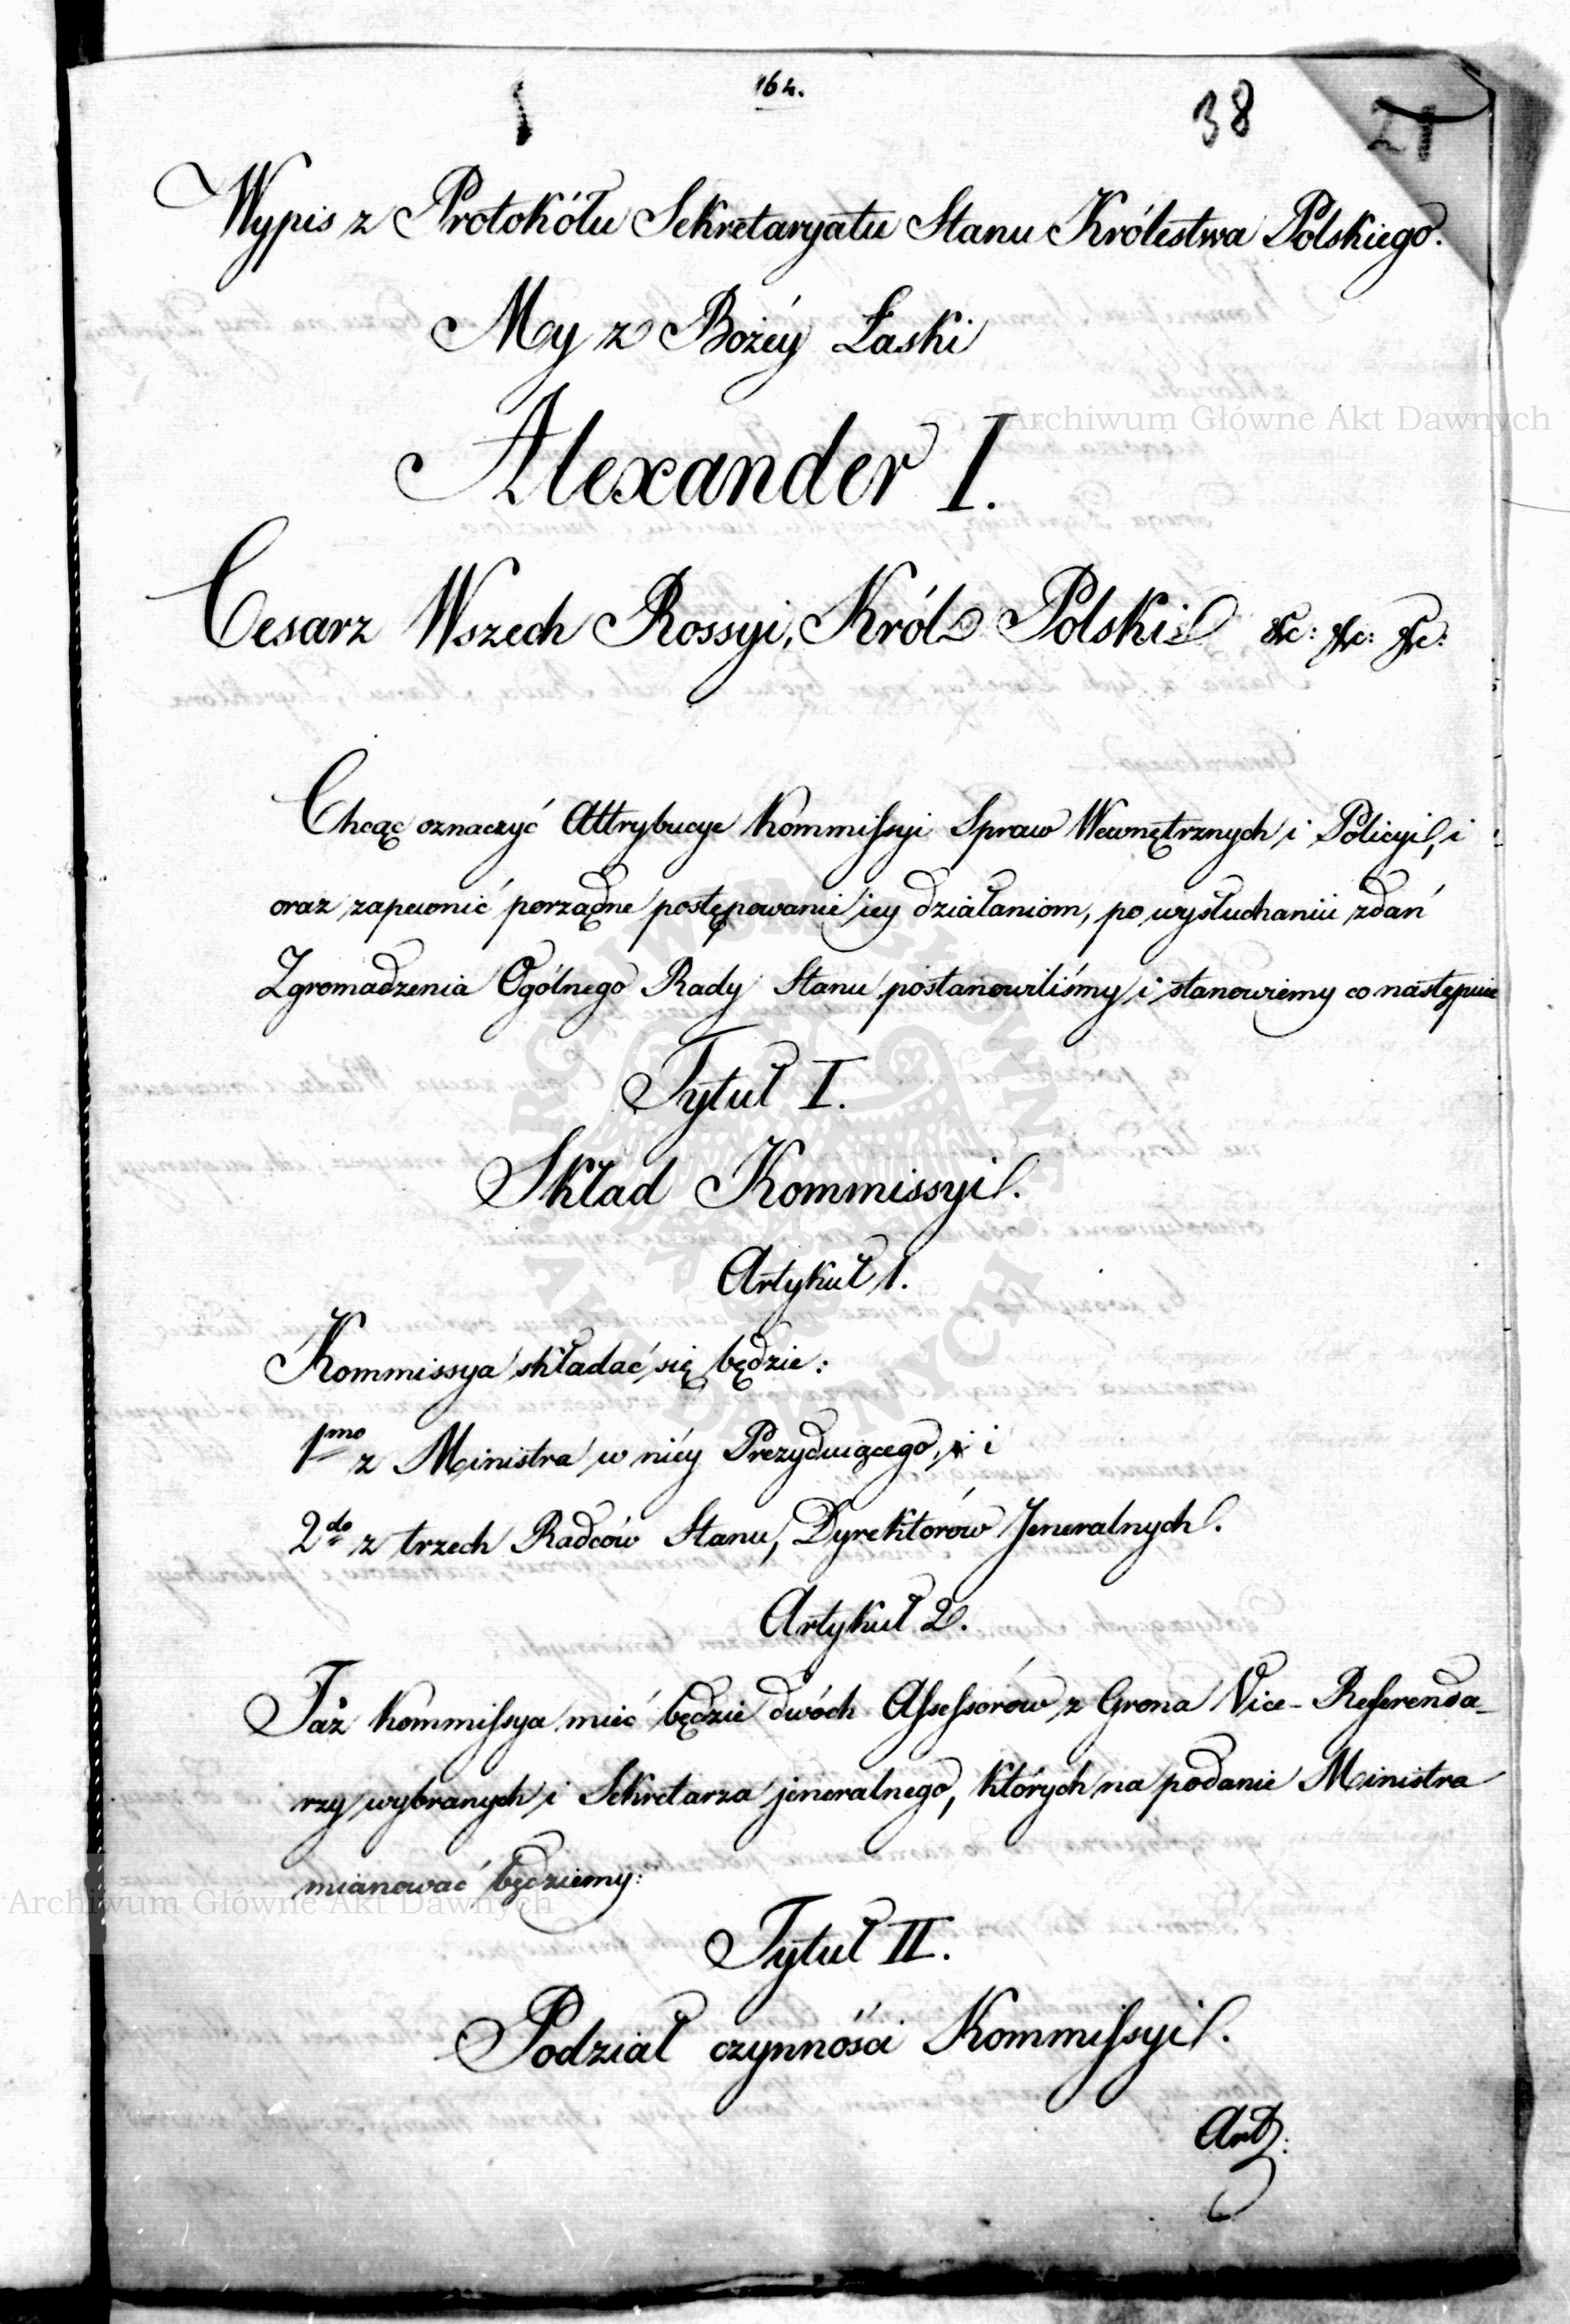 164.
38
21
Wypis z Protokółu Sekretaryatu Stanu Królestwa Polskiego.
My z Bożéy Łaski
Alexander I.
Cesarz Wszech Rossyi, Król Polski &c: &c: &c:
Chcąc oznaczyć Attrybucye Kommissyi Spraw Wewnętrznych i Policyi, i
oraz zapewnić porządne postępowanie iey działaniom, po wysłuchaniu zdań
Zgromadzenia Ogólnego Rady Stanu postanowiliśmy i stanowiemy co następuie
Tytuł I.
Skład Kommissyi.
Artykuł 1.
Kommissya składać się będzie:
1mo z Ministra w niéy Prezyduiącego, i
2do z trzech Radców Stanu, Dyrektorów Jeneralnych.
Artykuł 2.
Taż Kommissya mieć będzie dwóch Assessorów z Grona Vice-Referenda-
rzy wybranych i Sekretarza jeneralnego, których na podanie Ministra
mianować będziemy:
Tytuł II.
Podział czynności Kommissyi.
Art:
Archiwum Główne Akt Dawnych
Archiwum Główne Akt Dawnych
ARCHIWUM GŁÓWNE AKT DAWNYCH